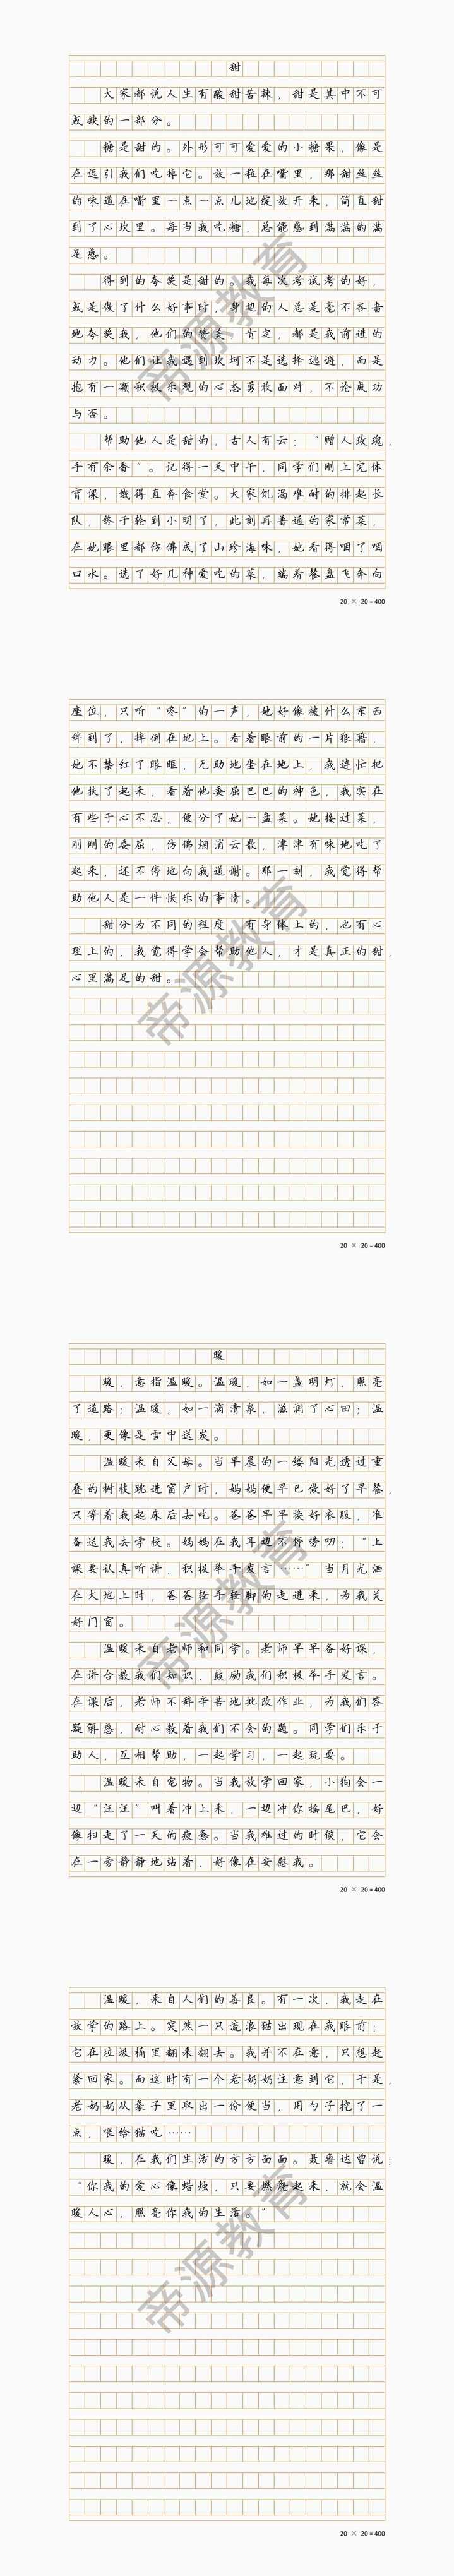 甜
大家都说人生有酸甜苦辣，甜是其中不可
或缺的一部分。
糖是甜的。外形可可爱爱的小糖果，像是
在逗引我们吃掉它。放一粒在嘴里，那甜丝丝
的味道在嘴里一点一点儿地绽放开来，简直甜
到了心坎里。每当我吃糖，总能感到满满的满
足感。
得到的夸奖是甜的。我每次考试考的好，
或是做了什么好事时，身边的人总是毫不吝啬
地夸奖我，他们的赞美、肯定，都是我前进的
动力。他们让我遇到坎坷不是选择逃避，而是
抱有一颗积极乐观的心态勇敢面对，不论成功
与否。
帮助他人是甜的，古人有云：“赠人玫瑰，
手有余香”。记得一天中午，同学们刚上完体
育课，饿得直奔食堂。大家饥渴难耐的排起长
队，终于轮到小明了，此刻再普通的家常菜，
在她眼里都仿佛成了山珍海味，她看得咽了咽
口水。选了好几种爱吃的菜，端着餐盘飞奔向
20 × 20 = 400
座位，只听“咚”的一声，她好像被什么东西
绊到了，摔倒在地上。看着眼前的一片狼藉，
她不禁红了眼眶，无助地坐在地上，我连忙把
他扶了起来，看着他委屈巴巴的神色，我实在
有些于心不忍，便分了她一盘菜。她接过菜，
刚刚的委屈，仿佛烟消云散，津津有味地吃了
起来，还不停地向我道谢。那一刻，我觉得帮
助他人是一件快乐的事情。
甜分为不同的程度，有身体上的，也有心
理上的，我觉得学会帮助他人，才是真正的甜，
心里满足的甜。
20 × 20 = 400
暖
暖，意指温暖。温暖，如一盏明灯，照亮
了道路；温暖，如一滴清泉，滋润了心田；温
暖，更像是雪中送炭。
温暖来自父母。当早晨的一缕阳光透过重
叠的树枝跳进窗户时，妈妈便早已做好了早餐，
只等着我起床后去吃。爸爸早早换好衣服，准
备送我去学校。妈妈在我耳边不停唠叨：“上
课要认真听讲，积极举手发言……”当月光洒
在大地上时，爸爸轻手轻脚的走进来，为我关
好门窗。
温暖来自老师和同学。老师早早备好课，
在讲台教我们知识，鼓励我们积极举手发言。
在课后，老师不辞辛苦地批改作业，为我们答
疑解惑，耐心教着我们不会的题。同学们乐于
助人，互相帮助，一起学习，一起玩耍。
温暖来自宠物。当我放学回家，小狗会一
边“汪汪”叫着冲上来，一边冲你摇尾巴，好
像扫走了一天的疲惫。当我难过的时候，它会
在一旁静静地站着，好像在安慰我。
20 × 20 = 400
温暖，来自人们的善良。有一次，我走在
放学的路上。突然一只流浪猫出现在我眼前；
它在垃圾桶里翻来翻去。我并不在意，只想赶
紧回家。而这时有一个老奶奶注意到它，于是，
老奶奶从袋子里取出一份便当，用勺子挖了一
点，喂给猫吃……
暖，在我们生活的方方面面。聂鲁达曾说：
“你我的爱心像蜡烛，只要燃烧起来，就会温
暖人心，照亮你我的生活。”
20 × 20 = 400
帝源教育
帝源教育
帝源教育
帝源教育